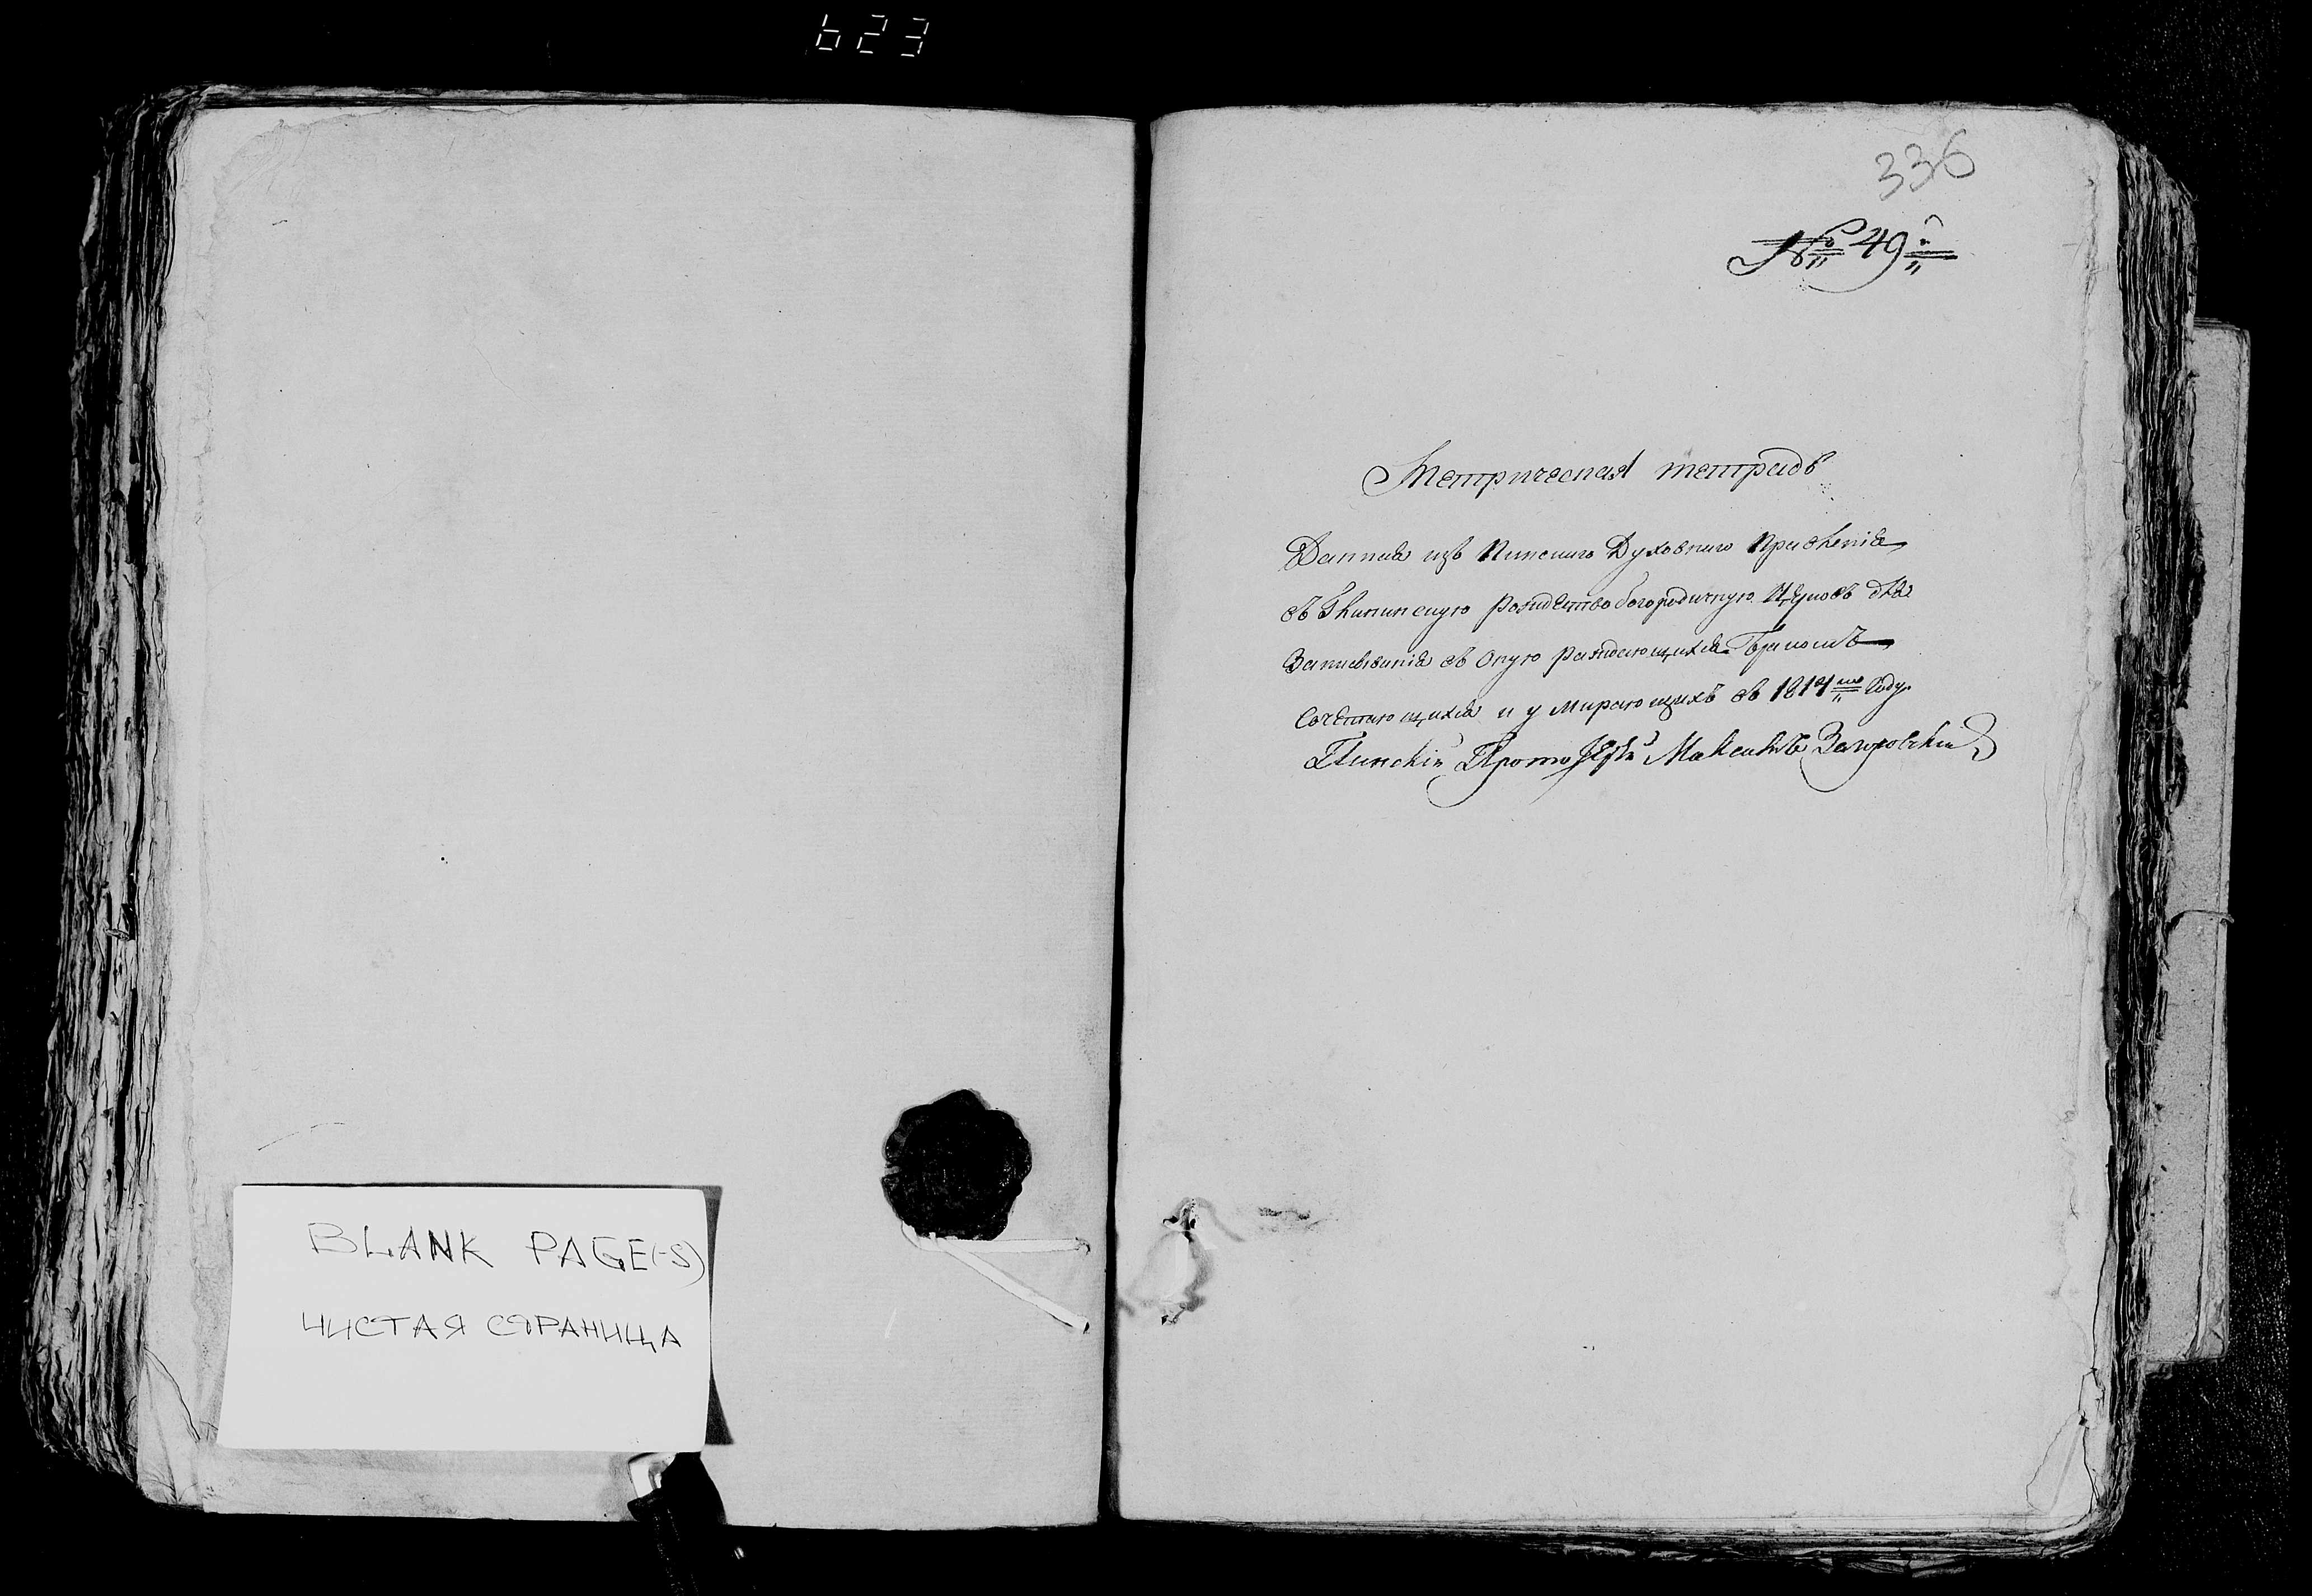 623
BLANK PAGE(-S)
ЧИСТАЯ СТРАНИЦА
336
№ 49й
Метрическая тетрадь
Данная изъ Пинскаго Духовнаго Правленія
въ рождество богородичную Церковь для
Записыванія въ оную раждающихся бракомъ
Сочетающихся и умирающихъ въ 1814мъ Году.
Пинскій Протоіерей Загоровскій